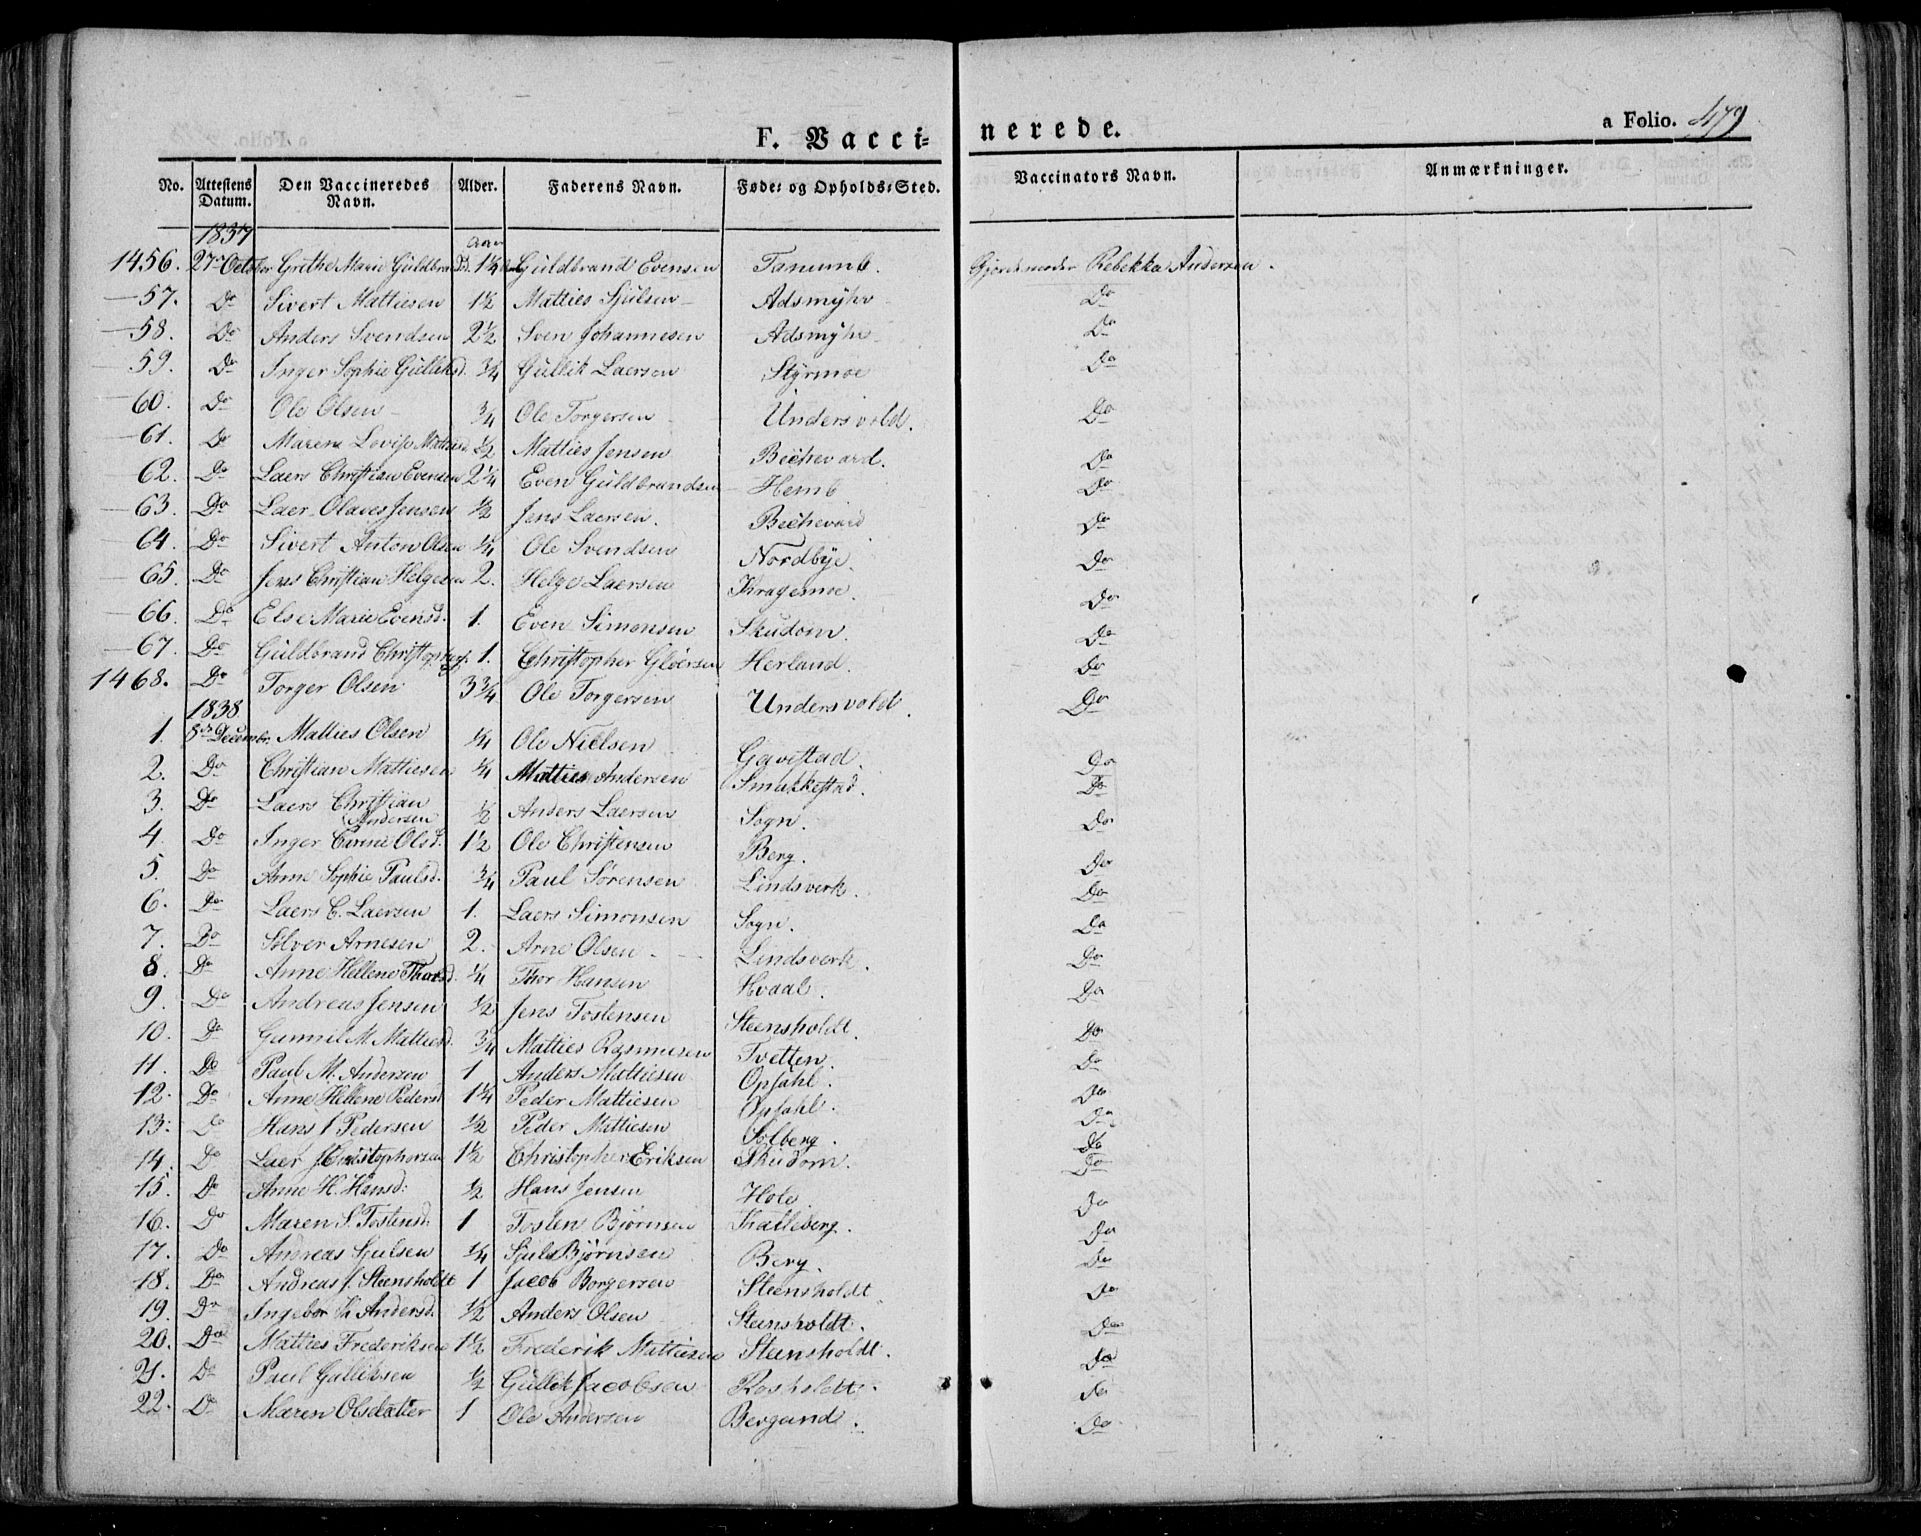 F. Vacci-
nerede.
a Folio. 479
No. Attestens Datum. Den Vaccineredes Navn. Alder. Faderens Navn. Føde- og Opholds-Sted. Vaccinators Navn. Anmærkninger.
1837
1456. 27de October Grethe Marie Guldbrandsd. 1 1/4 Guldbrand Evensen Tanumb. Gjordemoder Rebekka Andersen.
57. Do Sivert Mattiesen 1 1/2 Matties Sjulsen Adsmyhr Do
58. Do Anders Svendsen 2 1/2 Sven Johannesen Adsmyhr Do
59. Do Inger Sophie Gulliksd. 3/4 Gullik Laersen Styrmoe Do
60. Do Ole Olsen 3/4 Ole Torgersen Undersvold. Do
61. Do Maren Lovise Mattiesd. 1/2 Matties Jensen Bechevard. Do
62. Do Laers Christian Evensen 2 1/4 Even Guldbrandsen Hemb Do
63. Do Laer Olaves Jensen 1/2 Jens Laersen. Bechevard Do
64. Do Sivert Anton Olsen 1/4 Ole Svendsen Nordbye. Do
65. Do Jens Christian Helgesen 2. Helge Laersen Kragemoe. Do
66. Do Else Marie Evensd. 1. Even Simonsen Skudom. Do
67. Do Guldbrand Christophers. 1. Christopher Gloersen Herland. Do
1468. Do Torger Olsen 3 3/4 Ole Torgersen Undersvold. Do
1838
1. 8de Decembr. Matties Olsen 1/4 Ole Nielsen Gavestad. Do
2. Do Christian Mattiesen 1/4 Matties Andersen Smukkestad. Do
3. Do Laers Christian Andersen 1/2 Anders Laersen Sogn. Do
4. Do Inger Carine Olsd. 1 1/2 Ole Christensen Berg. Do
5. Do Anne Sophie Paulsd. 3/4 Paul Sørensen Lindsverk. Do
6. Do Laers C. Laersen 1. Laers Simonsen Sogn. Do
7. Do Sølver Arnesen 2. Arne Olsen Lindsverk. Do
8. Do Anne Hellene Thorsd. 1/4 Thor Hansen Hvaal. Do
9. Do Andreas Jensen 1/2 Jens Tostensen Steensholdt Do
10. Do Gunnil M. Mattiesd. 3/4 Matties Rasmusen Tvetten. Do
11. Do Paul M. Andersen 1 Anders Mattiesen Opsahl. Do
12. Do Anne Hellene Pedersd. 1 1/4 Peder Mattiesen Opsahl. Do
13. Do Hans J Pedersen 1/2 Peder Mattiesen Solberg. Do
14. Do Laer J Christophersen 1 1/2 Christopher Eriksen Skudom. Do
15. Do Anne H. Hansd: 1/2 Hans Jensen Hole Do
16. Do Maren S. Tostensd. 1 Tosten Bjørnsen Katteberg. Do
17. Do Andreas Sjulsen 1/4 Sjuls Bjørnsen Berg. Do
18. Do Andreas J. Steensholdt 1 Jacob Borgersen Steensholdt Do
19. Do Ingebor K Andersd. 1/2 Anders Olsen Steensholdt. Do
20. Do Matties Frederiksen 1 1/2 Frederik Mattiesen Steensholdt. Do
21. Do Paul Gulliksen 1/2 Gullik Jacobsen Rosholdt. Do
22. Do Maren Olsdatter 1 Ole Andersen Bergand. Do